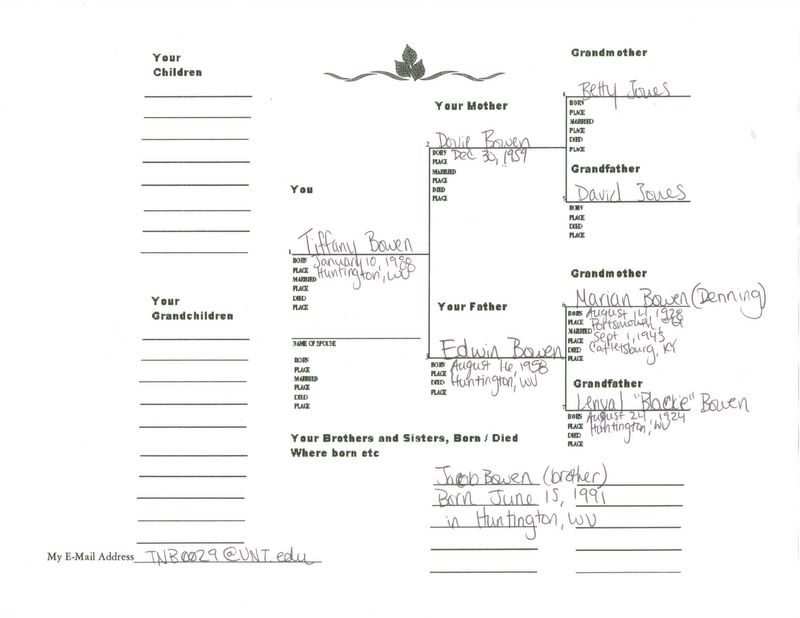 Your
Children
Grandmother
Betty Jones
BORN
PLACE
MARRIED
PLACE
DIED
PLACE
Your Mother
Dovie Bowen
BORN Dec 30, 1959
PLACE
MARRIED
PLACE
DIED
PLACE
Grandfather
David Jones
BORN
PLACE
DIED
PLACE
You
Tiffany Bowen
BORN January 10, 1988
PLACE Huntington, WV
MARRIED
PLACE
DIED
PLACE
Your
Grandchildren
Grandmother
Marian Bowen (Denning)
BORN August 14, 1928
PLACE Portsmouth
MARRIED Sept 1, 1945
PLACE Catlettsburg, KY
DIED
PLACE
Your Father
Edwin Bowen
BORN August 16, 1958
PLACE Huntington, WV
DIED
PLACE
NAME OF SPOUSE
BORN
PLACE
MARRIED
PLACE
DIED
PLACE
Grandfather
"Blackie" Bowen
BORN August 24, 1924
PLACE Huntington, WV
DIED
PLACE
Your Brothers and Sisters, Born / Died
Where born etc
Jacob Bowen (brother)
Born June 15, 1991
in Huntington, WV
My E-Mail Address TNB0029@UNT.edu